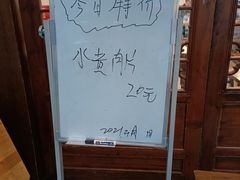 今日特价
水煮肉片
20元
2021年月日